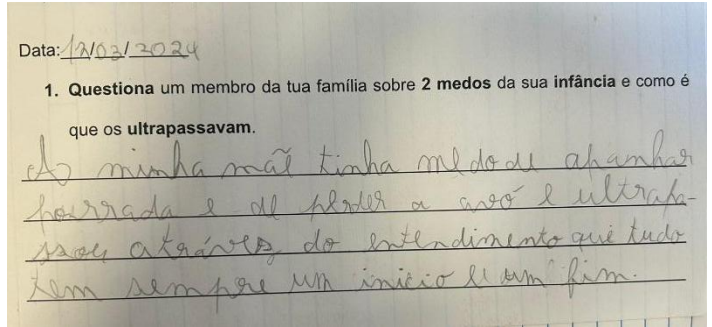 Data: 12/03/2024
1. Questiona um membro da tua família sobre 2 medos da sua infância e como é
que os ultrapassavam.
A minha mãe tinha medo de apanhar
porrada e de perder a avó e ultrapa-
ssou atráves do entendimento que tudo
tem sempre um início e um fim.